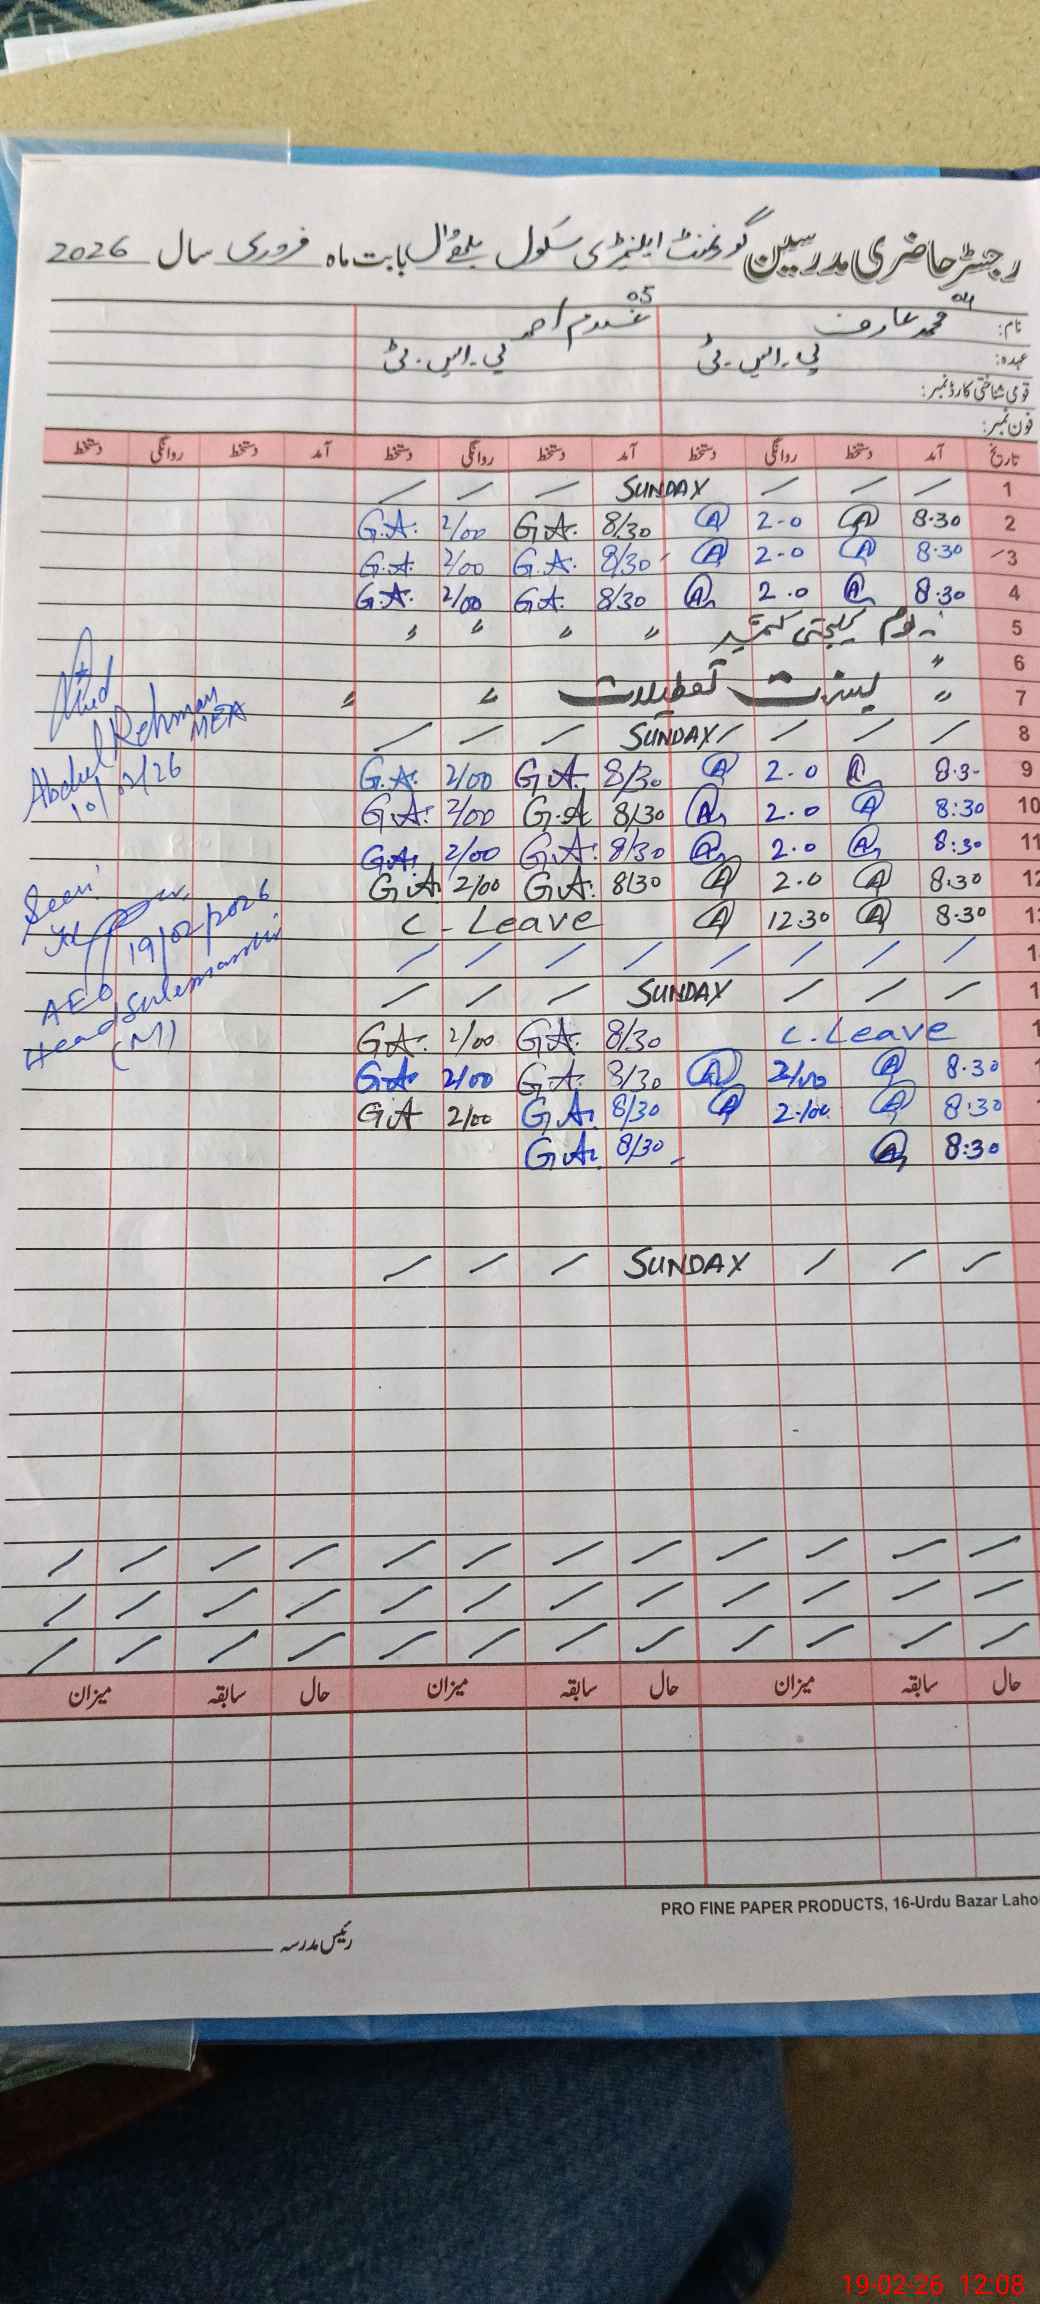 رجسٹر حاضری مدرسین گورنمنٹ ایلیمنٹری سکول بابت ماہ فروری سال 2026
نام: 04 محمد عارف 05 غلام احمد
عہدہ: پی.ایس.ٹی پی.ایس.ٹی
قومی شناختی کارڈ نمبر:
فون نمبر:
تاریخ آمد دستخط روانگی دستخط آمد دستخط روانگی دستخط آمد دستخط روانگی دستخط
1 SUNDAY
2 8.30 A 2.0 A 8/30 G.A. 2/00 G.A.
3 8.30 A 2.0 A 8/30 G.A. 2/00 G.A.
4 8.30 A 2.0 A 8/30 G.A. 2/00 G.A.
5 یوم یکجہتی کشمیر " " " "
6 "
7 " تعطیلات " "
8 SUNDAY
9 8.3- A 2.0 A 8/30 G.A. 2/00 G.A.
10 8:30 A 2.0 A 8/30 G.A 2/00 G.A.
11 8:30 A 2.0 A 8/30 G.A. 2/00 G.A.
12 8.30 A 2.0 A 8/30 G.A. 2/00 G.A.
8.30 A 12.30 A C-Leave
SUNDAY
C.Leave 8/30 G.A. 2/00 G.A.
8.30 A 2/00 A 8/30 G.A. 2/00 G.A.
8:30 A 2/00 A 8/30 G.A. 2/00 G.A
8:30 A 8/30 G.A.
SUNDAY
Abdul Rehman
MEA
10/02/26
Seen
19/02/2026
AEO
Head Sulemanki
(M)
حال سابقہ میزان حال سابقہ میزان حال سابقہ میزان
PRO FINE PAPER PRODUCTS, 16-Urdu Bazar Laho
رئیس مدرسہ
19-02-26 12:08